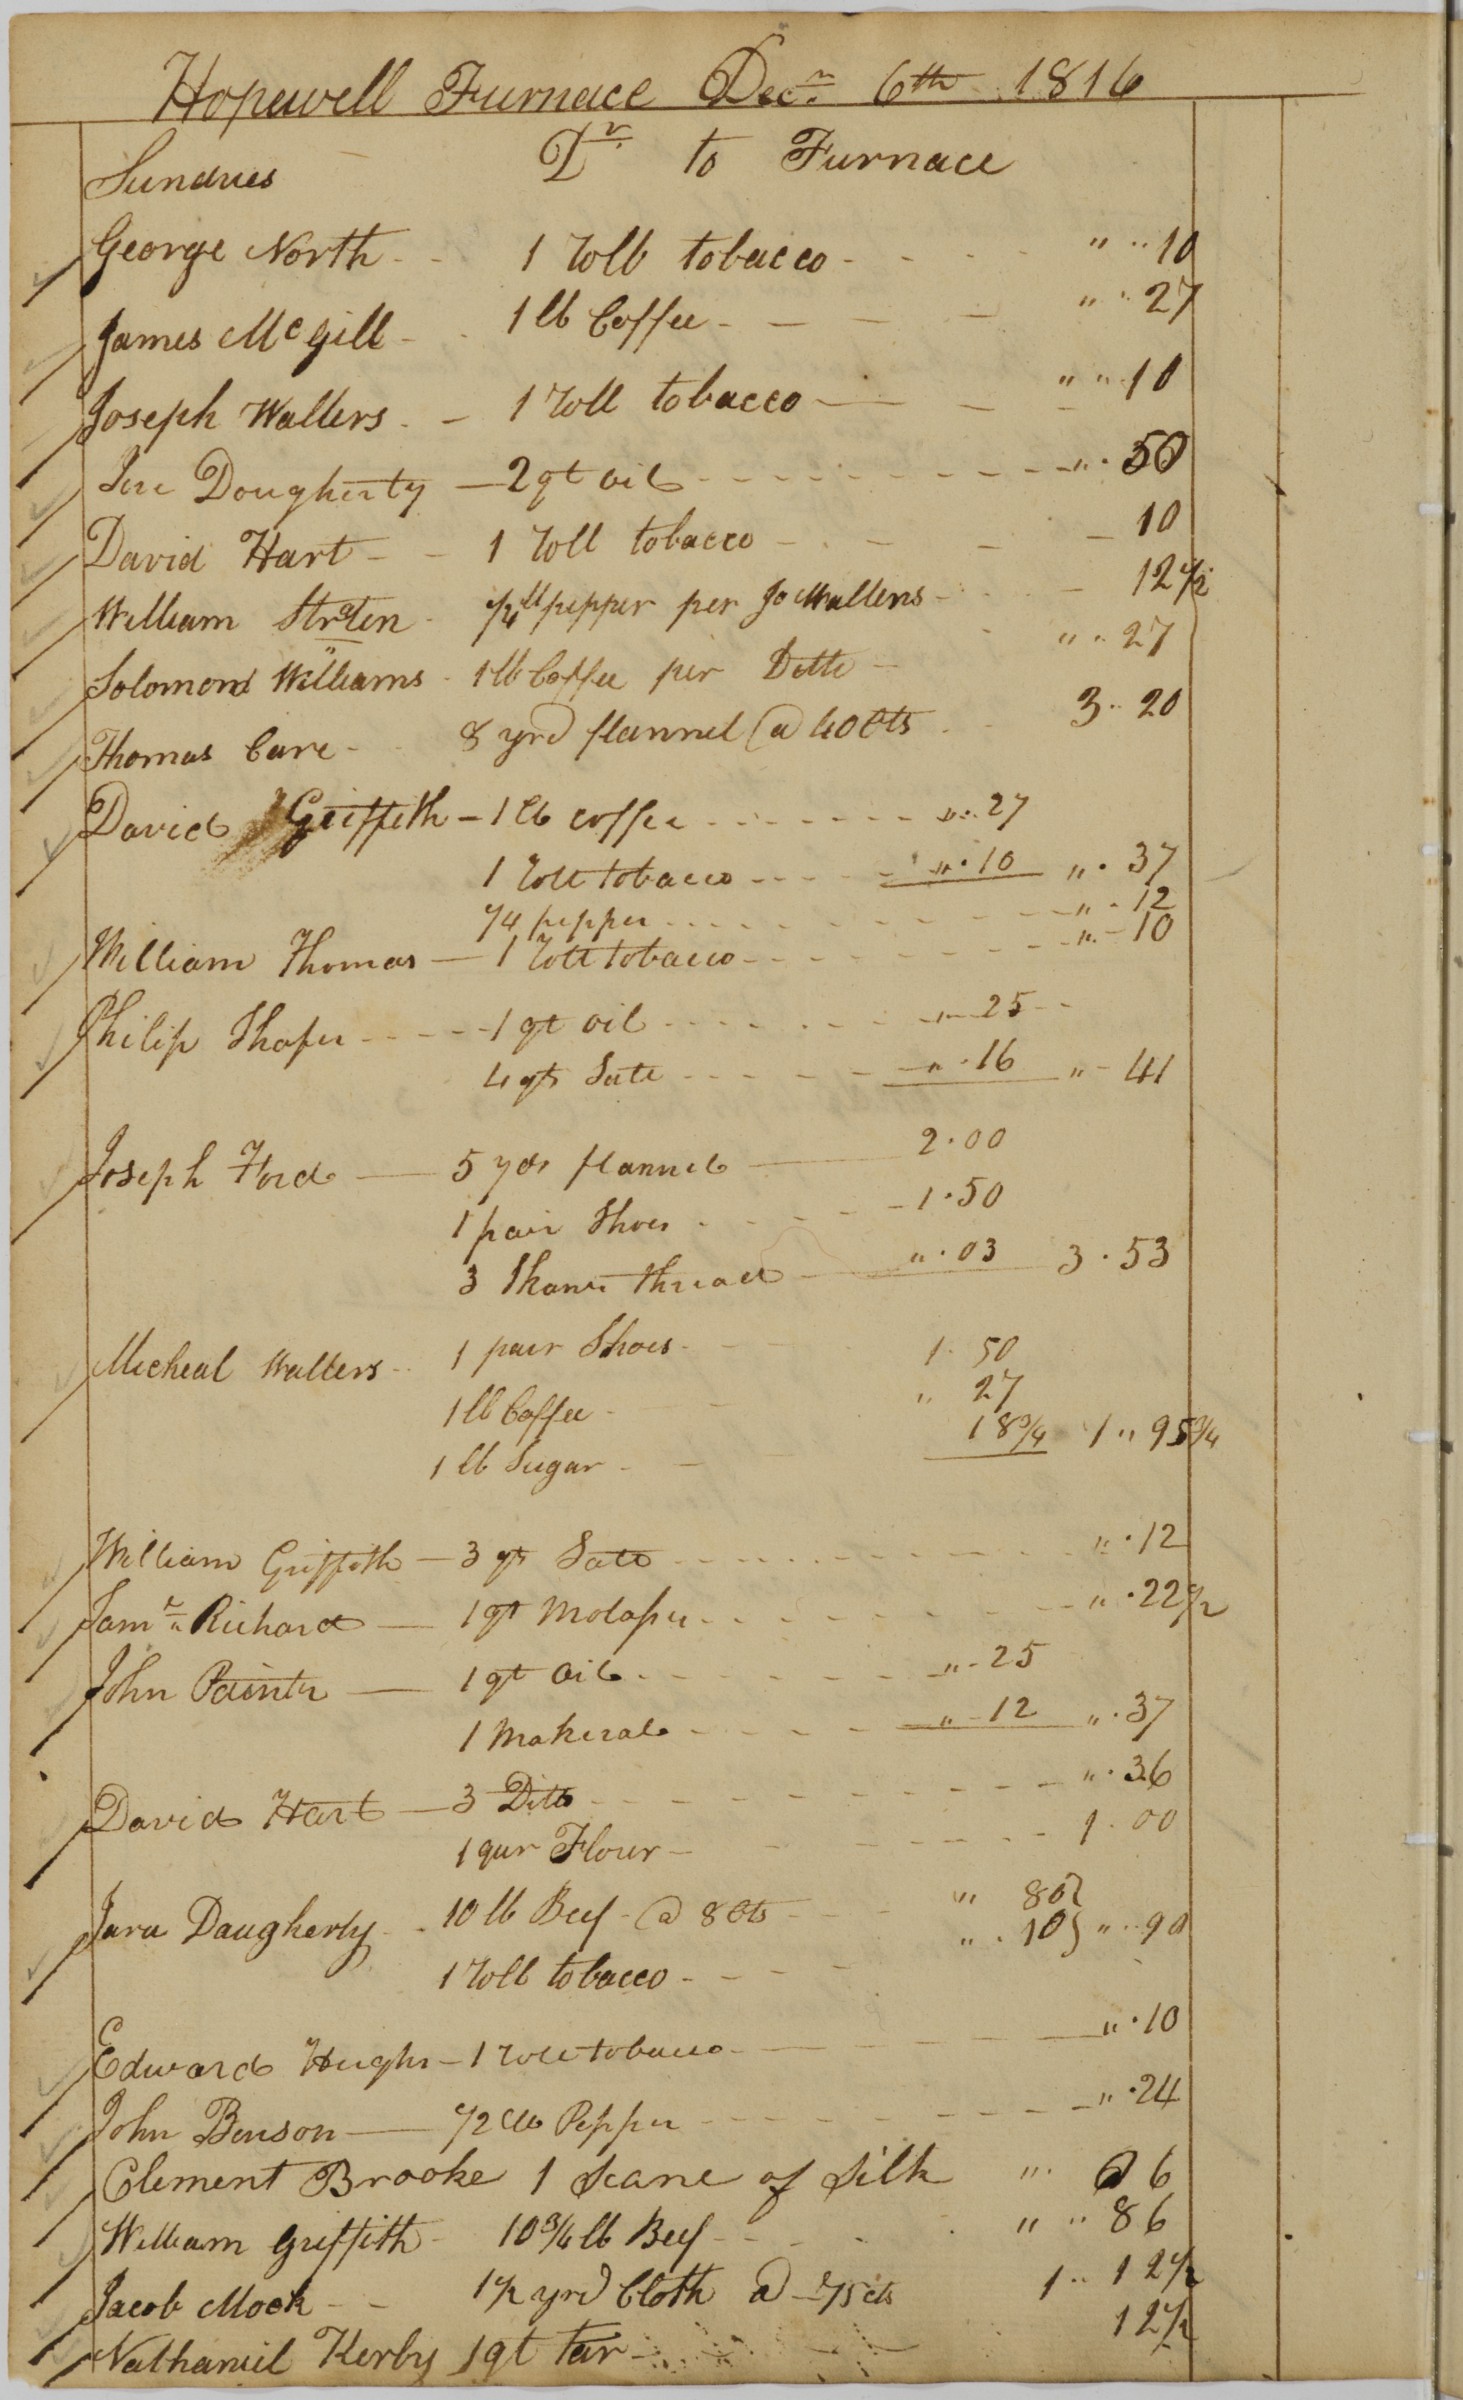 Hopewell Furnace Decr. 6th 1816
Sundries Dr. to Furnace
George North - - 1 roll tobacco - - - - " .. 10
James McGill - - 1 lb Coffee - - - - " . 27
Joseph Walters - - 1 roll tobacco - - - " " 10
Jere Dougherty - 2 qt oil - - - - " . 50
David Hart - - 1 roll tobacco - - - - 10
William Straten - 1/4 lb pepper per Jo Walters - - - 12 1/2
Solomond Williams - 1 lb Coffee per Ditto - - " .. 27
Thomas Care - - 8 yrd flannel @ 40 Cts - - 3 .. 20
David Griffith - 1 lb coffee - - - - " . 27
1 roll tobacco - - - - " . 10 " . 37
1/4 pepper - - - - " . 12
William Thomas - 1 roll tobacco - - - - " . - 10
Philip Shafer - - - 1 qt oil - - - - " - 25 - -
4 qts Salt - - - - " . 16 " - 41
Joseph Ford - 5 yds flannel - 2 . 00
1 pair Shoes - - - - 1 . 50
3 Skanes thread - " . 03 3 . 53
Micheal Walters - - 1 pair Shoes - - - 1 . 50
1 lb Coffee - - - " 27
1 lb Sugar - - 18 3/4 1 " 95 3/4
William Griffith - 3 qts Salt - - - - " . 12
Saml. Richard - 1 qt Molases - - - - " . 22 1/2
John Painter - 1 qt Oil - - - - " - 25
1 Makeral - - - - " - 12 " . 37
David Hart - 3 Ditto - - - - " . 36
1 qur Flour - - - - 1 . 00
Jara Daugherty - - 10 lb Beef - @ 8 Cts - - - " 80 }
1 roll tobacco - - - - " . 10 } " .. 90
Edward Hughs - 1 roll tobacco - - - - " . 10
John Benson - 1/2 lb Pepper - - - - " . 24
Clement Brooke 1 Scane of Silk " . 06
William Griffith - 10 3/4 lb Beef - - - - " .. 86
Jacob Mock - - 1 1/2 yrd Cloth @ - 75 cts 1 .. 12 1/2
Nathaniel Kerby 1 qt tar - - - - 12 1/2